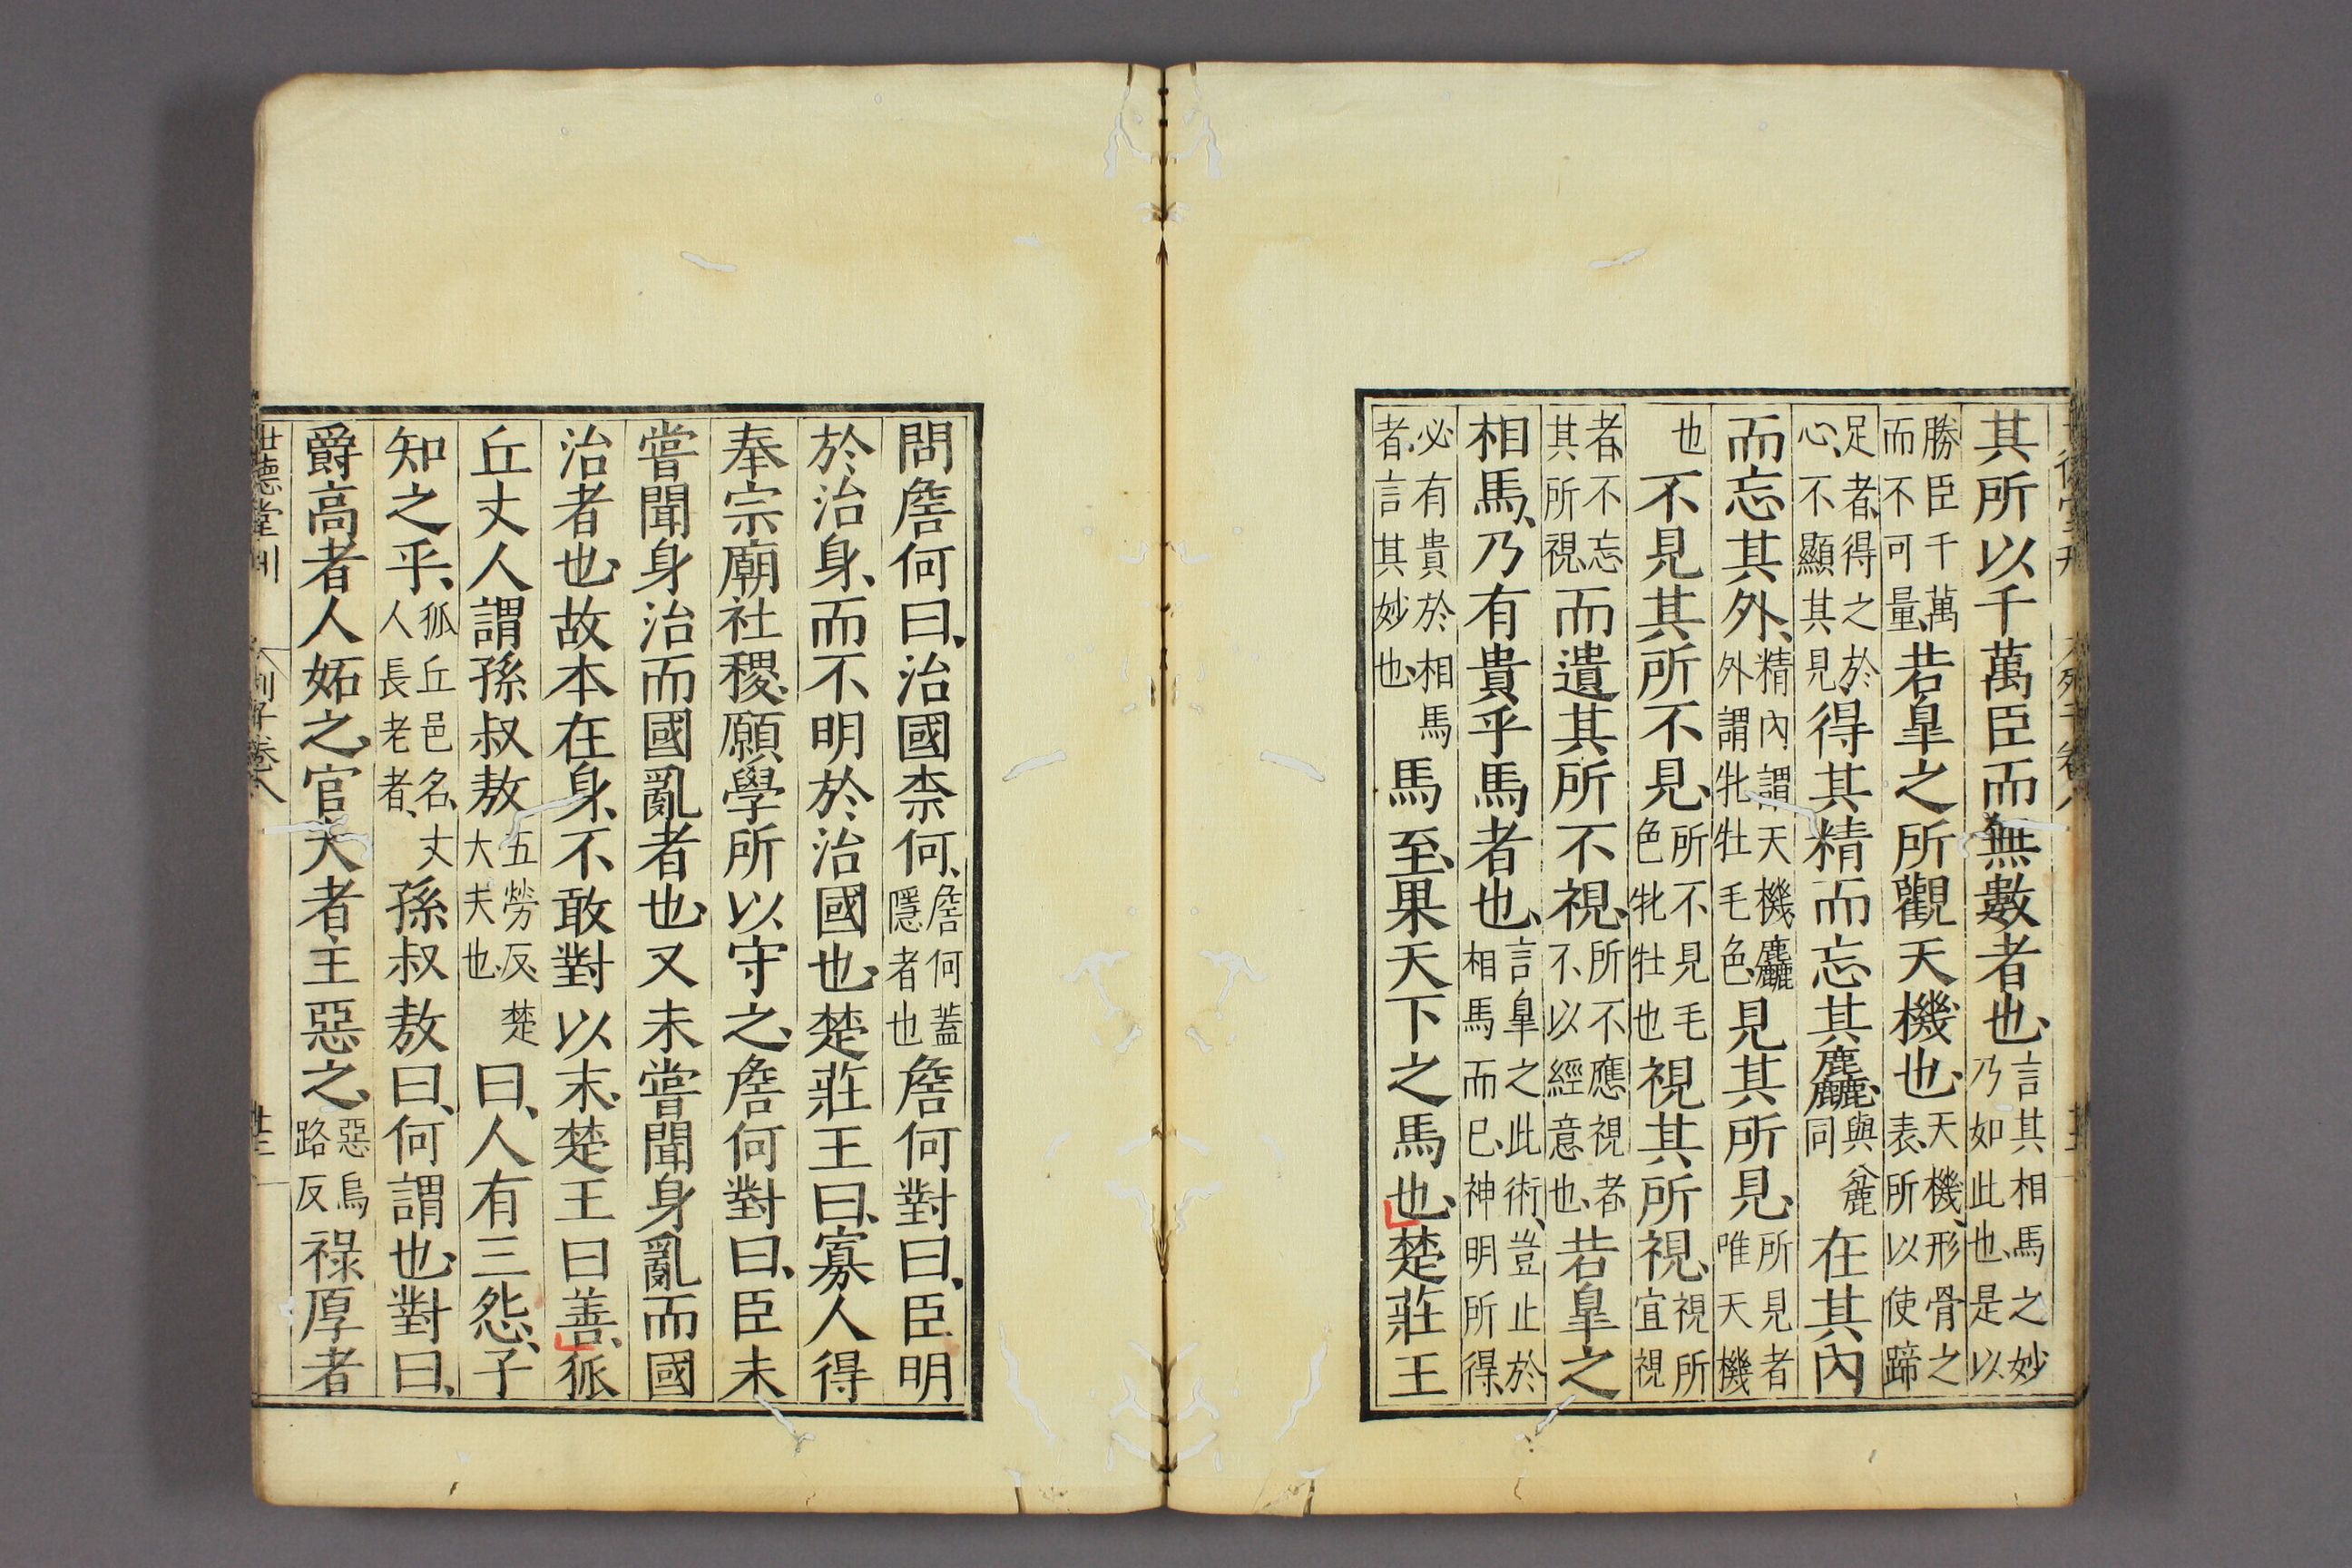 其所以千萬臣而無數者也、言其相馬之妙乃如此也、是以
勝臣千萬而不可量、若臯之所觀天機也、天機、形骨之表、所以使蹄
足者、得之於心、不顯其見得其精而忘其麤、與麄同在其內
而忘其外、精內謂天機、麤外謂牝牡毛色、見其所見、所見者唯天機
也不見其所不見、所不見毛色牝牡也視其所視、視所宜視
者、不忘其所視、而遺其所不視、所不應視者、不以經意也、若臯之
相馬、乃有貴乎馬者也、言臯之此術、豈止於相馬而已、神明所得、
必有貴於相馬者、言其妙也、馬至、果天下之馬也、楚莊王
問詹何曰、治國柰何、詹何蓋隱者也詹何對曰、臣明
於治身、而不明於治國也、楚莊王曰、寡人得
奉宗廟社稷、願學所以守之、詹何對曰、臣未
嘗聞身治而國亂者也、又未嘗聞身亂而國
治者也、故本在身、不敢對以末、楚王曰善、狐
丘丈人謂孫叔敖五勞反、楚大夫也、曰、人有三怨、子
知之乎、狐丘邑名、丈人長老者、孫叔敖曰、何謂也、對曰、
爵高者人妬之、官大者主惡之、惡烏路反祿厚者
世德堂刊 列子卷八 廿三